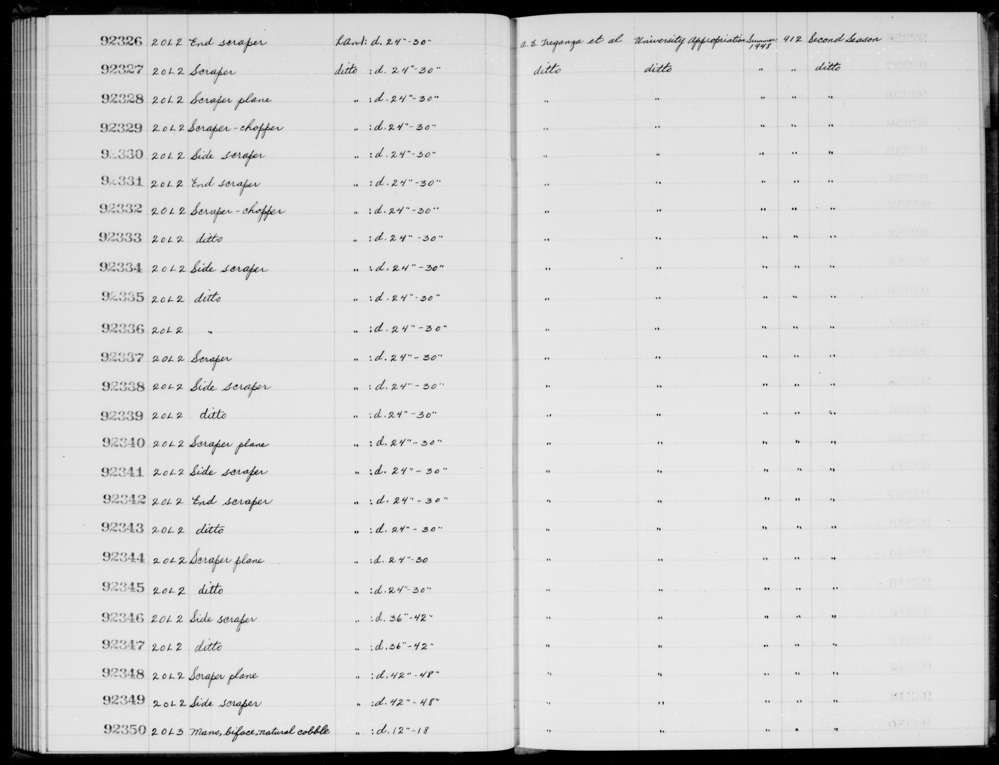 92326 20L2 End scraper LAn1: d. 24"-30" A. E. Treganza et al University Appropriation Summer 1948 912 Second Season
92327 20L2 Scraper ditto : d. 24"-30" ditto ditto " " ditto
92328 20L2 Scraper plane " : d. 24"-30" " " " " "
92329 20L2 Scraper-chopper " : d. 24"-30" " " " " "
92330 20L2 Side scraper " : d. 24"-30" " " " " "
92331 20L2 End scraper " : d. 24"-30" " " " " "
92332 20L2 Scraper-chopper " : d. 24"-30" " " " " "
92333 20L2 ditto " : d. 24"-30" " " " " "
92334 20L2 Side scraper " : d. 24"-30" " " " " "
92335 20L2 ditto " : d. 24"-30" " " " " "
92336 20L2 " " : d. 24"-30" " " " " "
92337 20L2 Scraper " : d. 24"-30" " " " " "
92338 20L2 Side scraper " : d. 24"-30" " " " " "
92339 20L2 ditto " : d. 24"-30" " " " " "
92340 20L2 Scraper plane " : d. 24"-30" " " " " "
92341 20L2 Side scraper " : d. 24"-30" " " " " "
92342 20L2 End scraper " : d. 24"-30" " " " " "
92343 20L2 ditto " : d. 24"-30" " " " " "
92344 20L2 Scraper plane " : d. 24-30 " " " " "
92345 20L2 ditto " : d. 24"-30" " " " " "
92346 20L2 Side scraper " : d. 36"-42" " " " " "
92347 20L2 ditto " : d. 36"-42" " " " " "
92348 20L2 Scraper plane " : d. 42"-48" " " " " "
92349 20L2 Side scraper " : d. 42"-48" " " " " "
92350 20L3 Mano, biface, natural cobble " : d. 12"-18 " " " " "